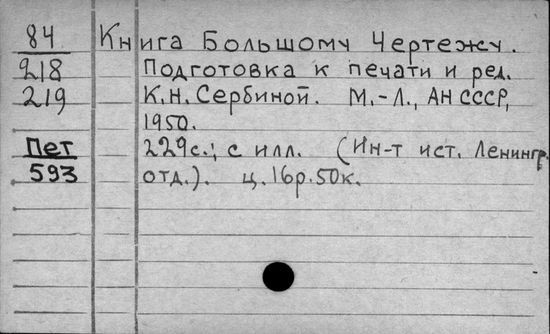 84 Книга Большому Чертежу.
218 Подготовка к печати и ред.
219 К.Н. Сербиной. М.-Л., АН СССР,
1950.
Пет 229с.; с илл. (Ин-т ист. Ленингр.
593 отд.). ц. 16р. 50к.